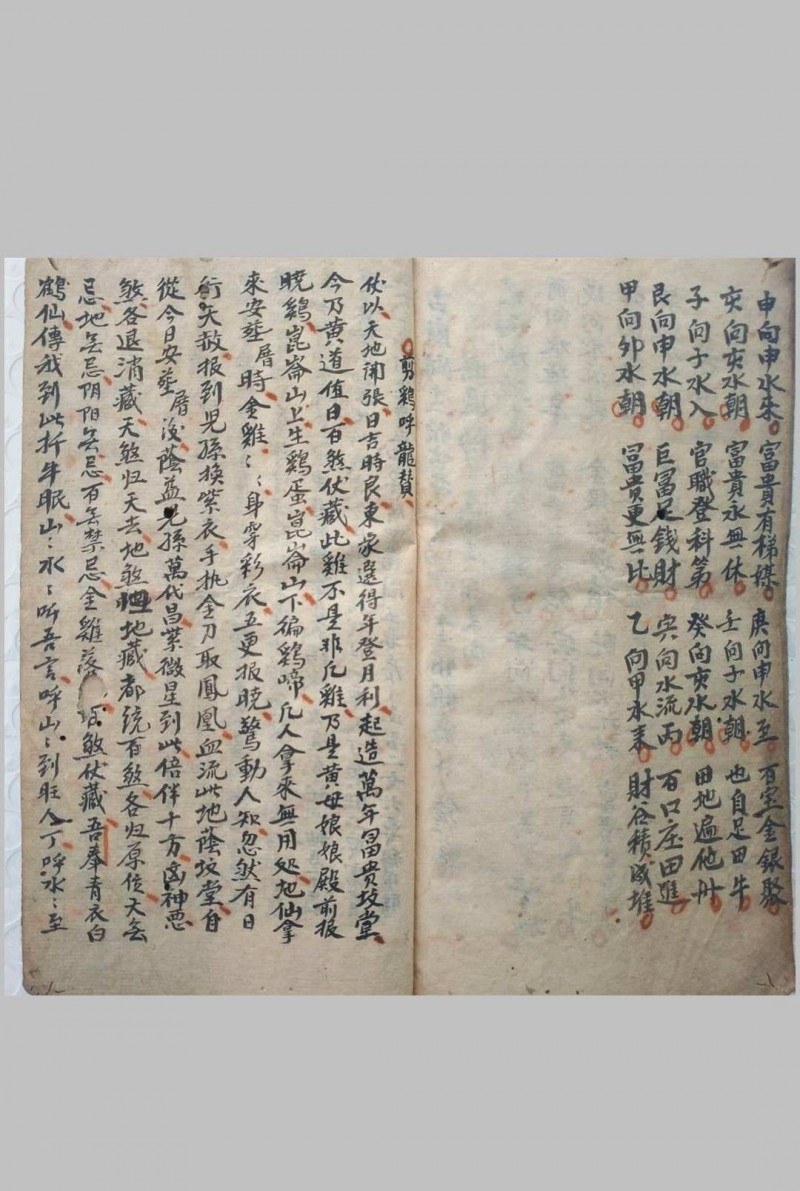 申向申水來 富貴有梯媒 庚向申水至 百宝金銀聚
亥向亥水朝 富貴永無休 壬向子水朝 也自足田牛
子向子水入 官職登科第 癸向亥水朝 田地遍他州
艮向申水朝 巨冨足錢財 向水流丙 百口庄田進
甲向卯水朝 冨貴更無比 乙向甲水来 財谷積成堆
剪鷄呼龍賛
伏以天地開張日吉時良東家選得年登月利起造萬年冨貴坟堂
今乃黄道值日百煞伏藏此雞不是非凡雞乃是黄母娘娘殿前报
曉鷄崑崙山上生鷄蛋崑崙山下徧鷄啼凡人拿來無用处地仙拿
來安塟厝時金雞〻〻身穿彩衣五更报曉驚動人知忽然有日
啣天赦报到兒孫換紫衣手执金刀取鳳凰血流此地蔭坟堂自
從今日安塟厝後蔭益兒孫萬代昌紫微星到此倍伴十方凶神悪
煞各退消藏天煞归天去地煞地藏都統百煞各归原位天無
忌地無忌阴阳無忌百無禁忌金雞落煞伏藏吾奉青衣白
鶴仙傳我到此折牛眠山〻水〻听吾言呼山〻到旺人丁呼水〻至